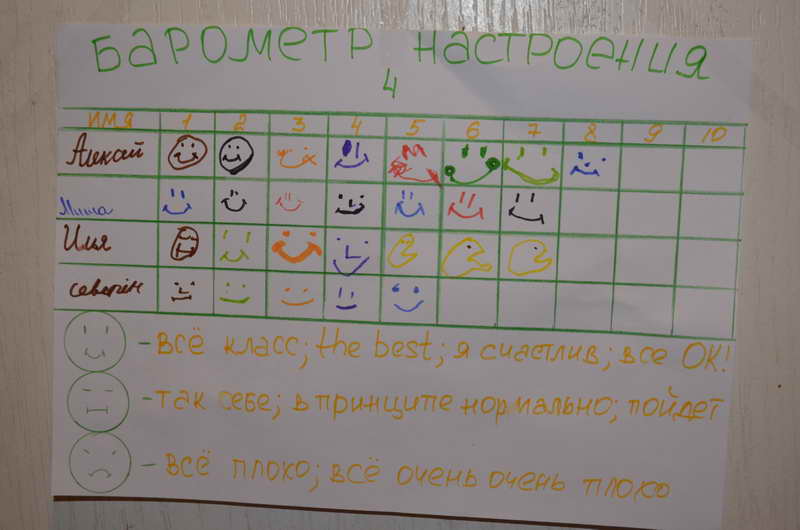 БАРОМЕТР НАСТРОЕНИЯ
4
ИМЯ 1 2 3 4 5 6 7 8 9 10
Алексей
Миша
Илья
северін
- ВСЁ КЛАСС; the best; я счастлив; все ОК!
- ТАК СЕБЕ; в принципе нормально; пойдет
- ВСЁ ПЛОХО; ВСЁ ОЧЕНЬ ОЧЕНЬ ПЛОХО